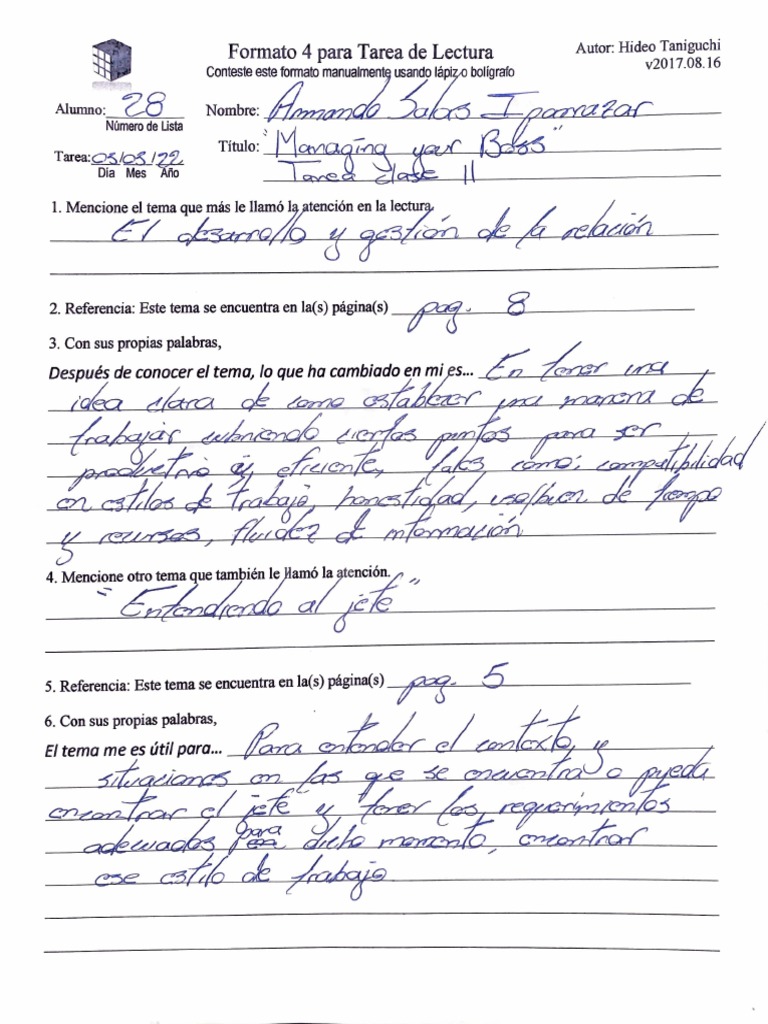 Formato 4 para Tarea de Lectura
Autor: Hideo Taniguchi
v2017.08.16
Conteste este formato manualmente usando lápiz o bolígrafo
Alumno: 28
Número de Lista
Nombre: Armando Salas
Tarea: 03/03/22
Día Mes Año
Título: "Managing your Boss"
Tarea clase 11
1. Mencione el tema que más le llamó la atención en la lectura.
El desarrollo y gestión de la relación
2. Referencia: Este tema se encuentra en la(s) página(s) pag. 8
3. Con sus propias palabras,
Después de conocer el tema, lo que ha cambiado en mi es... En tener una
idea clara de como establecer una manera de
trabajar cubriendo ciertos puntos para ser
productivo y eficiente, tales como: compatibilidad
en estilos de trabajo, honestidad, uso/buen de tiempo
y recursos, fluidez de información
4. Mencione otro tema que también le llamó la atención.
"Entendiendo al jefe"
5. Referencia: Este tema se encuentra en la(s) página(s) pag. 5
6. Con sus propias palabras,
El tema me es útil para... Para entender el contexto y
situaciones en las que se encuentra o pueda
encontrar el "jefe" y tener los requerimientos
adecuados para dicho momento, encontrar
ese estilo de trabajo